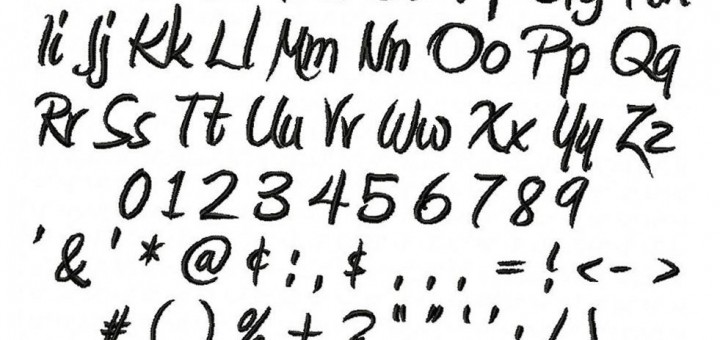 Ii Jj Kk Ll Mm Nn Oo Pp Qq
Rr Ss Tt Uu Vv Ww Xx Yy Zz
0 1 2 3 4 5 6 7 8 9
' & ' * @ ¢ : , $ , , , = ! < - >
# ( ) % + ? " " ' ' . / \